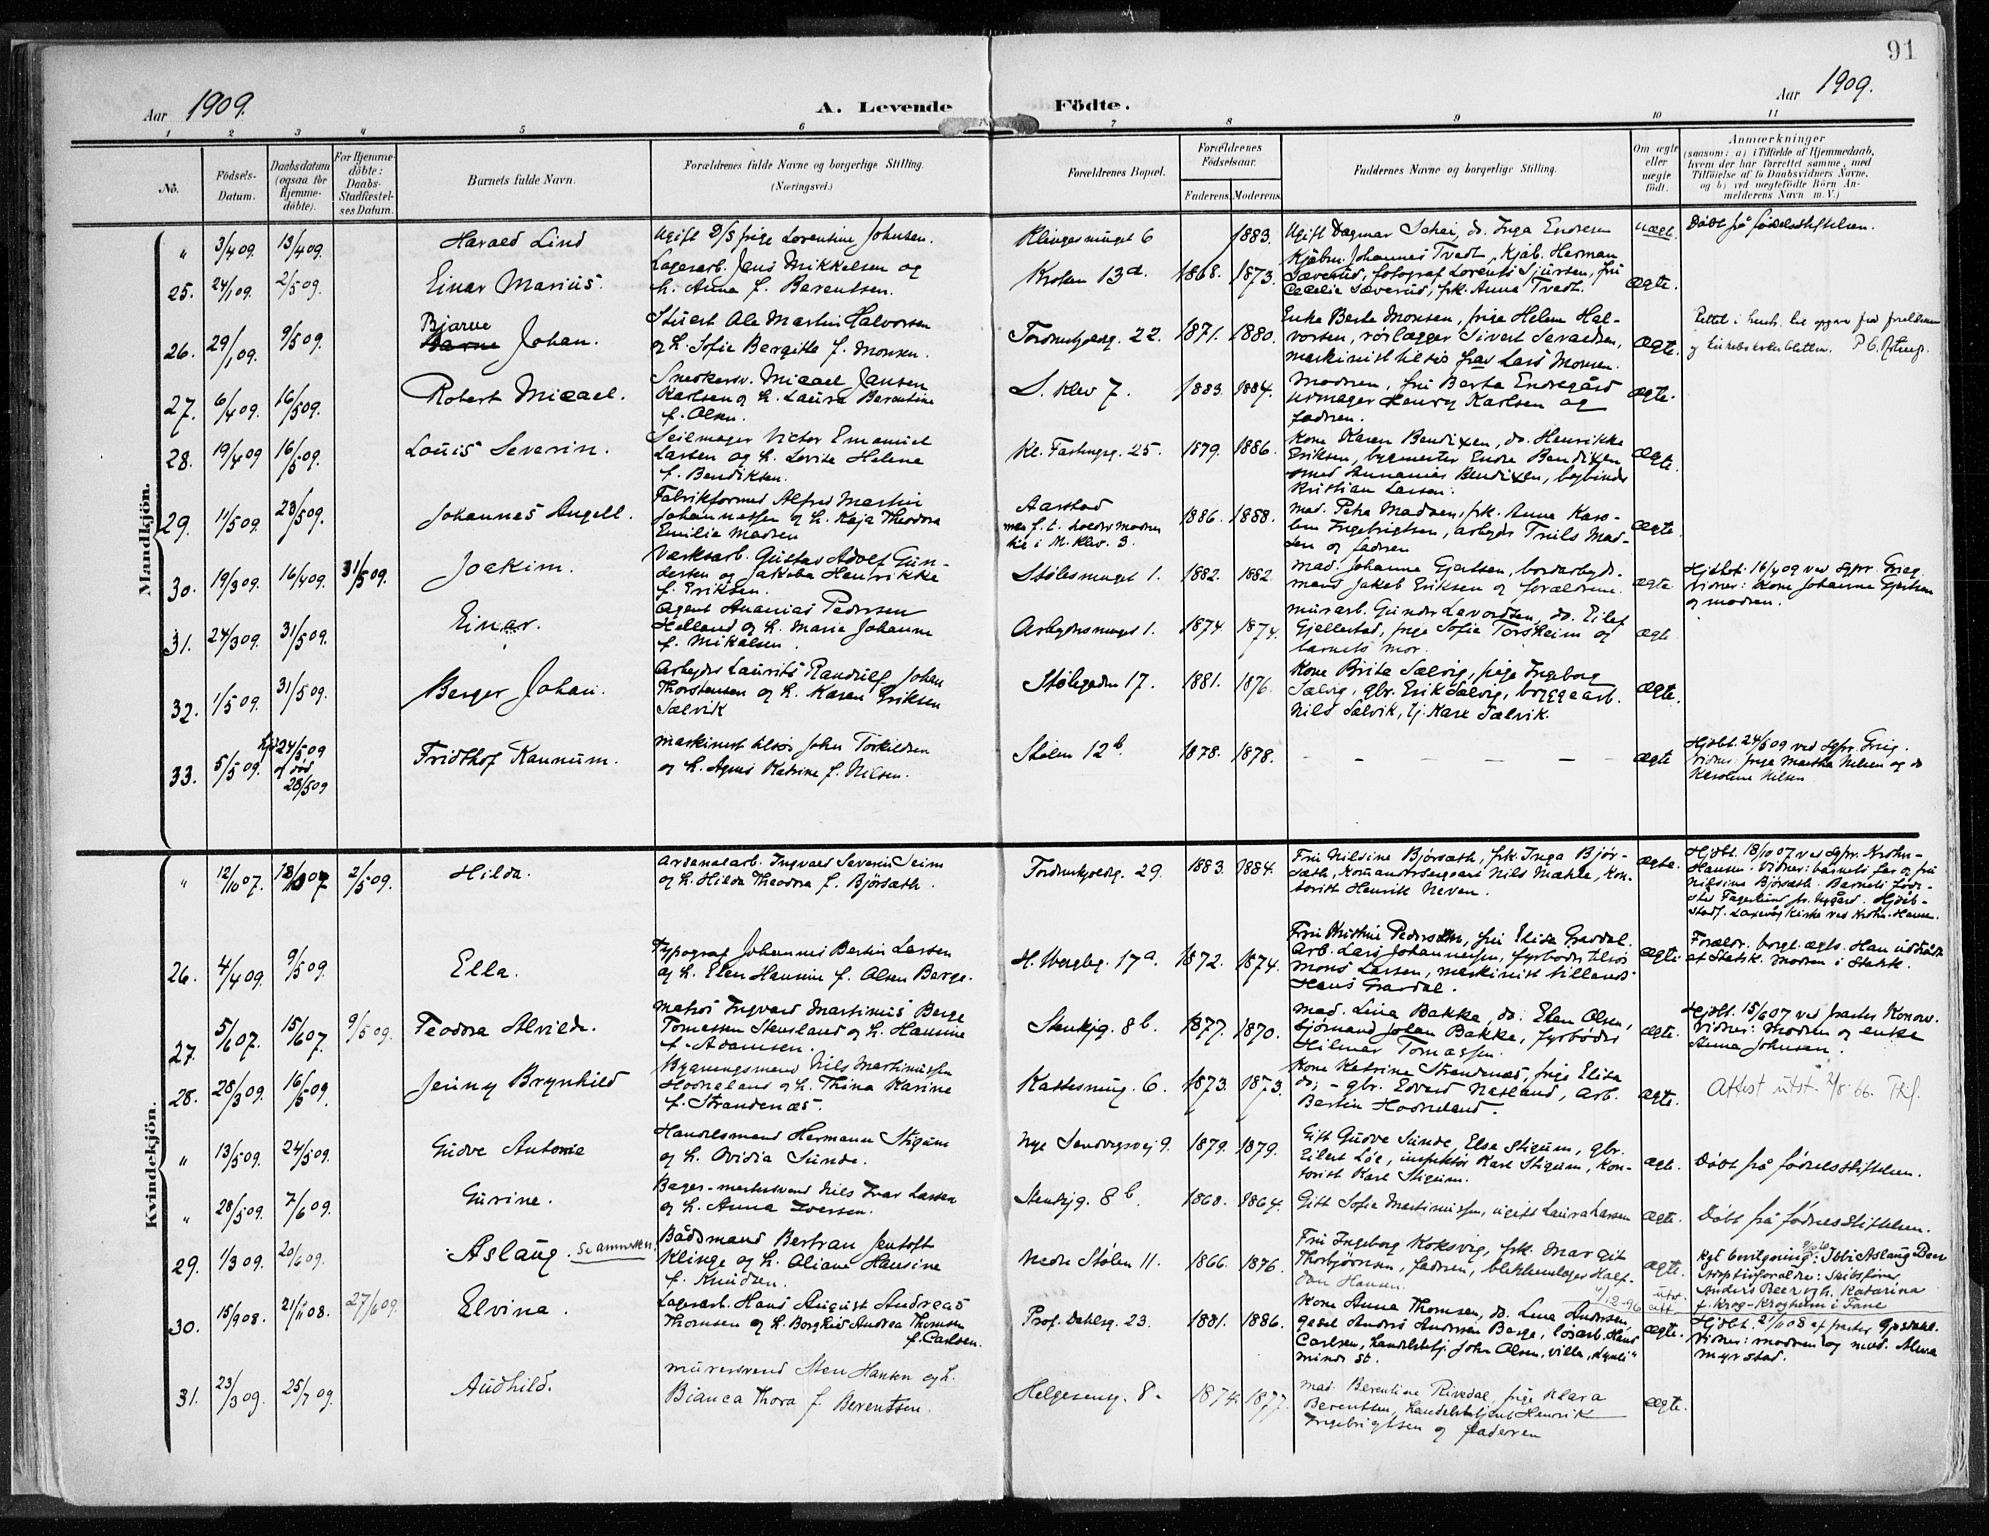 91
Aar 1909. A. Levende Födte. Aar 1909.
1 2 3 4 5 6 7 8 9 10 11
No. Födsels-Datum. Daabsdatum (ogsaa for Hjemme-döbte). For Hjemme-döbte: Daabs-Stadfæstel-ses Datum. Barnets fulde Navn. Forældrenes fulde Navne og borgerlige Stilling. (Næringsvei.) Forældrenes Bopæl. Forældrenes Födselsaar. Faderens Moderens Faddernes Navne og borgerlige Stilling. Om ægte eller uægte födt. Anmærkninger (saasom: a) i Tilfælde af Hjemmedaab, hvem der har forrettet samme, med Tilföielse af to Daabsvidners Navne, og b) ved uægtefödte Börn An-melderens Navn m. V.)
Mandkjön.
" 3/4 09. 13/4 09. Harald Lind Ugift Lorentine Johnsen. Klingesmuget 6 1883. Ugift Dagmar do. Inga Endresen uægt. Döbt på födselsstiftelsen.
25. 24/1 09. 2/5 09. Einar Marius. Lagerarb. Jens Mikkelsen og
h. Anna f. Berentsen. Kroken 13a. 1868. 1873. Kjøbm. Johannes Tvedt, Kjøb. Herman
Sæverud, fotograf Lorents Sjursen, fru
Cecelie Sæverud, frk. Anna Tvedt. ægte.
26. 29/1 09. 9/5 09. Bjarne Johan. Stuert Ole Martin Halvorsen
og h. Sofie Bergitte f. Monsen. 22. 1871. 1880. Enke Berte Monsen, frige Helene Hal-
vorsen, rørlægger Sivert
maskinist tilsjøs Lars Monsen. ægte. Rettet i
27. 6/4 09. 16/5 09. Robert Micael. Snedkersv. Micael Jansen
Karlsen og h. Laura Berentine
f. Olsen. S. Klev 7. 1883. 1884. Modren, fru Berta Endregård
urmager Henry Karlsen og
fadren. ægte.
28. 19/4 09 16/5 09. Louis Severin. Seilmager Victor Emanuel
Larsen og h. Lovise Helene
f. Bendiksen. Kl. 25. 1879. 1886. Kone Karen Bendixen, do. Henrikke
Eriksen, bygmester Endre Bendixen
smed Ananias Bendixen, bogbinder
Kristian Larsen. ægte.
29. 11/5 09. 23/5 09. Johannes Angell. Fabrikformed Alfred Martin
Johannessen og h. Kaja Theodora
Emilie Madsen Aarstad
men f. t. hos
i N. Klev. 3. 1886. 1888. mad. Petra Madsen, frk. Anna Karo-
line Ingebrigtsen, arbeyder Truls Mad-
sen og fadren ægte.
30. 19/3 09. 16/4 09. 31/5 09. Joakim. Værksarb. Gustav Adolf Gun-
dersen og Jakoba Henrikke
f. Eriksen. Stölesmuget 1. 1882. 1882. mad. Johanne Gjertsen,
mand Jakob Eriksen og forældrene. ægte Hjdbt. 16/4 09 ved Sgpr. Grieg.
Vidner: Kone Johanne Gjertsen
og modren.
31. 24/3 09. 31/5 09. Einar. Agent Ananias Pedersen
Helland og h. Marie Johanne
f. Mikalsen. Arbeydersmuget 1. 1874. 1874. murarb. Gunder do. Eilef
Gjellestad, frige Sofie Torsheim og
barnets mor. ægte
32. 1/5 09. 31/5 09. Berger Johan. Arbeyder Laurits Randulf Johan
Thorstensen og h. Karen Eriksen
Sælvik Stölegaden 17. 1881. 1876. Kone Brita Sælvig, frige Ingeborg
Sælvig, gbr. Erik Sælvig, byggearb.
Nils Sælvik, Kare Sælvik. ægte.
33. 5/5 09. 24/5 09
og död
28/5 09 Fridthof Rannum. maskinist tilsjøs John Torkildsen
og h. Agnes Katrine f. Nilsen. Stølen 12b. 1878. 1878. – – – – – ægte Hjdbt. 24/5 09 ved Sgpr. Grieg.
Vidner: frige Martha Nilsen og do
Karoline Nilsen
Kvindekjön.
" 12/10 07. 18/10 07 2/5 09. Hilda. Arsenalarb. Ingvald Severin Seim
og h. Hilda Theodora f. Björsæth. 29. 1883. 1884. Fru Nilsine Björsæth, frk. Inga Björ-
sæth, Nils Mæhle, Kon-
torist Henrik Neven. ægte. Hjdbt. 18/10 07 ved Sgpr. Krohn-
Hansen. Vidner: barnets far og fru
Nilsine Björsæth. Barnets føde-
sted Hjdåb-
stadf. Laxevåg Kirke ved Krohn-Hansen.
26. 4/4 09. 9/5 09. Ella. Typograf Johannes Bertin Larsen
og h. Elen Hansine f. Olsen Berge. H. Wergelg. 17a. 1872. 1874. Fru Kristine Pedersen, fru Elida Gravdal.
Arb. Lars Johannessen, fyrbøder tilsjøs
Mons Larsen, maskinist tillands
Hans Gravdal. ægte. Foræld. borgl. ægtv. Han
af Statsk. Modren i Statsk.
27. 5/6 07. 15/6 07. 9/5 09. Teodora Alvilde. Matros Ingvard Martinius Berge
Tomassen Stensland og h. Hansine
f. Adamsen. Stenkjg. 8b. 1877. 1870. mad. Lina Bakke, do. Elen Olsen,
sjømand Johan Bakke, fyrbøder
Hilmar Tomassen. ægte. Hjdbt. 15/6 07 ved præsten Konow.
Vidner: Modren og enke
Anna Johnsen.
28. 28/3 09. 16/5 09. Jenny Brynhild Bygningsmand Nils Martinussen
Hordneland og h. Thina Karine
f. Strandenæs. Kattesmug. 6. 1873. 1873. Kone Katrine Strandenæs, frige Elida
do, – gbr. Edvard Næsland, Arb.
Bertin Hordneland. ægte. Attest utst. 2/8 66.
" 13/5 09. 24/5 09. Gudve Antonie Handelsmand Hermann Stigum
og h. Ovidia Sunde. Nye Sandvigsvej 9. 1879. 1879. Gift Gudve Sunde, Else Stigum, gbr.
Eilert Löe, inspektør Karl Stigum, Kon-
torist Karl Stigum. ægt. Döbt på födselsstiftelsen.
" 28/5 09. 7/6 09. Gurine. Bager-mestersvend Nils Ivar Larsen
og h. Anna Iversen. Stenkjg. 8b. 1860. 1864. Gift Sofie Martinussen, ugift Laura Larsen ægte. Döbt på födselsstiftelsen.
29. 1/3 09. 20/6 09. Aslaug. se anmerkn. Bådsmand Bertran Jentoft
Klinge og h. Oliane Hansine
f. Knudsen. Nedre Stölen 11. 1866. 1876. Fru Ingeborg Koksvig, frk. Margit
Thorbjørnsen, fadren, blikkenslager Half-
dan Hansen. ægte. Kgl. bevilgning: Ibbi Aslaug Beer
Adoptivforældre: Skibsfører
Anders Beer og h. Katarina
f. Krog-Krogheim i Fane
30. 15/9 08. 21/11 08. 27/6 09. Elvina. Lagerarb. Hans August Andreas
Thomsen og h. Borghild Andrea Thomsen
f. Carlsen. Prof. Dahlsg. 23. 1881. 1886. 4/12-96 utst. att. Kone Anna Thomsen, do. Lena Andersen,
gesel Anders Andersen Berge, løsarb. Hans
Carlsen, handelsbtj. John Olsen, villa "Lynli"
Minde st. ægte. Hjdbt. 21/11 08 af præsten Gjesdahl.
Vidner: modren og mad. Alma
Myrstad.
31. 23/3 09. 25/7 09. Audhild. murersvend Sten Hansen og h.
Bianca Thora f. Berentsen. Helgesensg. 8. 1874. 1877. mad. Berentine Rivedal, frige Klara
Berentsen, handelsbetjent Henrik
Ingebrigtsen og faderen ægte.